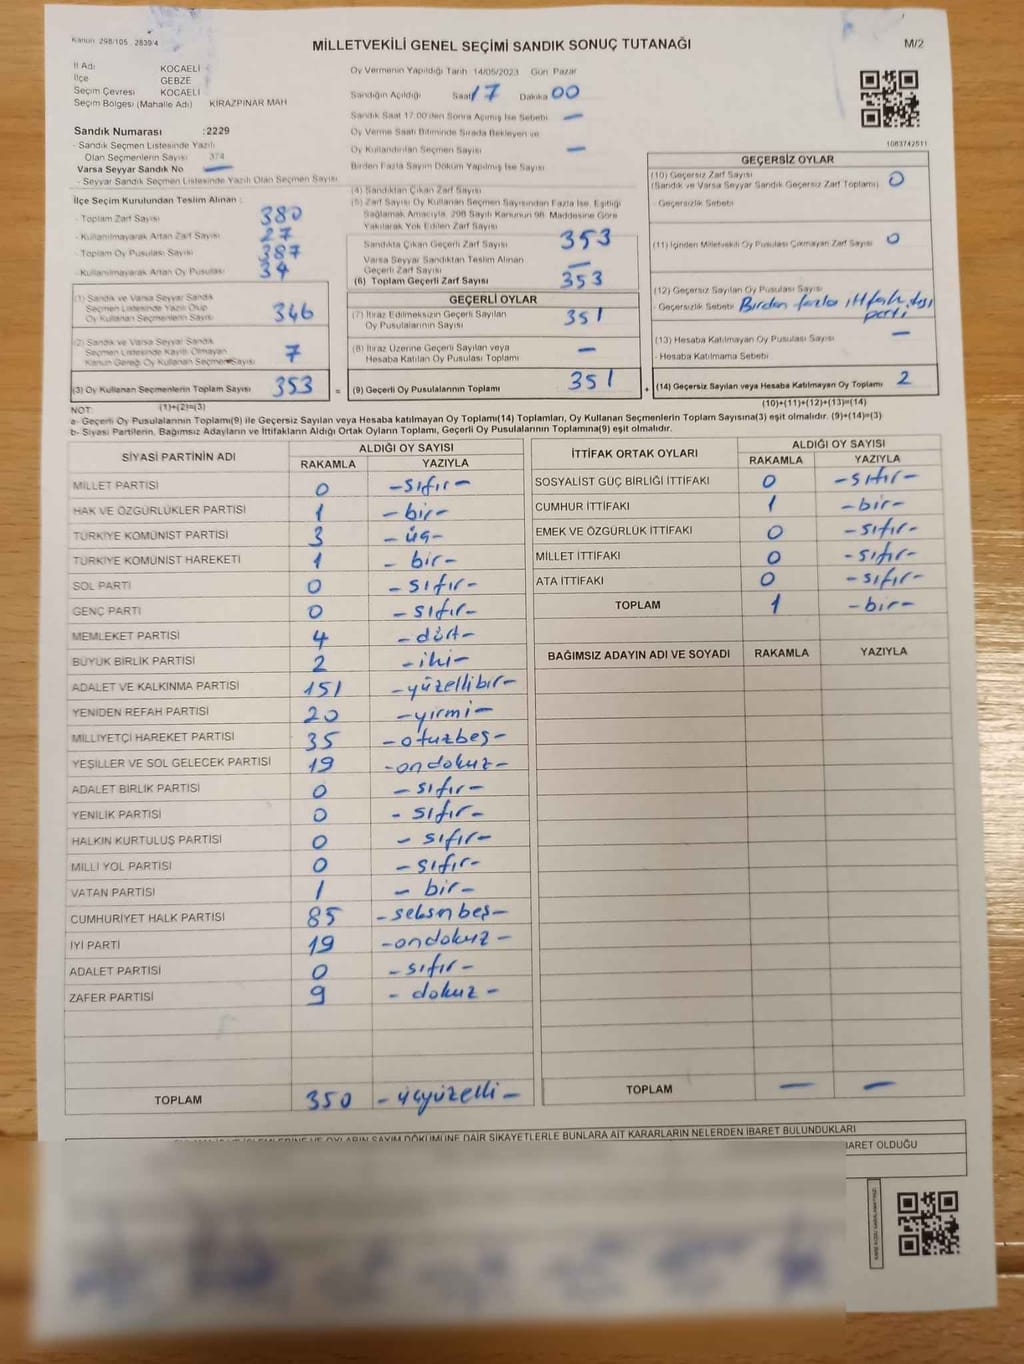 Kanun 298/105 2839/4
MİLLETVEKİLİ GENEL SEÇİMİ SANDIK SONUÇ TUTANAĞI
M/2
İl Adı KOCAELİ
İlçe GEBZE
Seçim Çevresi KOCAELİ
Seçim Bölgesi (Mahalle Adı) KİRAZPINAR MAH
Sandık Numarası : 2229
- Sandık Seçmen Listesinde Yazılı
Olan Seçmenlerin Sayısı 374
Varsa Seyyar Sandık No —
- Seyyar Sandık Seçmen Listesinde Yazılı Olan Seçmen Sayısı
İlçe Seçim Kurulundan Teslim Alınan :
- Toplam Zarf Sayısı 380
- Kullanılmayarak Artan Zarf Sayısı 27
- Toplam Oy Pusulası Sayısı 387
- Kullanılmayarak Artan Oy Pusulası 34
(1) Sandık ve Varsa Seyyar Sandık
Seçmen Listesinde Yazılı Olup
Oy Kullanan Seçmenlerin Sayısı 346
(2) Sandık ve Varsa Seyyar Sandık
Seçmen Listesinde Kayıtlı Olmayan
Kanun Gereği Oy Kullanan Seçmen Sayısı 7
(3) Oy Kullanan Seçmenlerin Toplam Sayısı 353 =
(1)+(2)=(3)
Oy Vermenin Yapıldığı Tarih 14/05/2023 Gün Pazar
Sandığın Açıldığı Saat 17 Dakika 00
Sandık Saat 17:00'den Sonra Açılmış İse Sebebi —
Oy Verme Saati Bitiminde Sırada Bekleyen ve
Oy Kullandırılan Seçmen Sayısı —
Birden Fazla Sayım Döküm Yapılmış İse Sayısı
(4) Sandıktan Çıkan Zarf Sayısı
(5) Zarf Sayısı Oy Kullanan Seçmen Sayısından Fazla İse, Eşitliği
Sağlamak Amacıyla, 298 Sayılı Kanunun 98. Maddesine Göre
Yakılarak Yok Edilen Zarf Sayısı
Sandıkta Çıkan Geçerli Zarf Sayısı 353
Varsa Seyyar Sandıktan Teslim Alınan
Geçerli Zarf Sayısı —
(6) Toplam Geçerli Zarf Sayısı 353
GEÇERLİ OYLAR
(7) İtiraz Edilmeksizin Geçerli Sayılan
Oy Pusulalarının Sayısı 351
(8) İtiraz Üzerine Geçerli Sayılan veya
Hesaba Katılan Oy Pusulası Toplamı —
(9) Geçerli Oy Pusulalarının Toplamı 351 +
1083742511
GEÇERSİZ OYLAR
(10) Geçersiz Zarf Sayısı
(Sandık ve Varsa Seyyar Sandık Geçersiz Zarf Toplamı) 0
- Geçersizlik Sebebi
(11) İçinden Milletvekili Oy Pusulası Çıkmayan Zarf Sayısı 0
(12) Geçersiz Sayılan Oy Pusulası Sayısı
- Geçersizlik Sebebi Birden fazla ittifak dışı
parti
(13) Hesaba Katılmayan Oy Pusulası Sayısı —
- Hesaba Katılmama Sebebi
(14) Geçersiz Sayılan veya Hesaba Katılmayan Oy Toplamı 2
(10)+(11)+(12)+(13)=(14)
NOT:
a- Geçerli Oy Pusulalarının Toplamı(9) ile Geçersiz Sayılan veya Hesaba katılmayan Oy Toplamı(14) Toplamları, Oy Kullanan Seçmenlerin Toplam Sayısına(3) eşit olmalıdır. (9)+(14)=(3)
b- Siyasi Partilerin, Bağımsız Adayların ve İttifakların Aldığı Ortak Oyların Toplamı, Geçerli Oy Pusulalarının Toplamına(9) eşit olmalıdır.
SİYASİ PARTİNİN ADI ALDIĞI OY SAYISI
RAKAMLA YAZIYLA
MİLLET PARTİSİ 0 -sıfır-
HAK VE ÖZGÜRLÜKLER PARTİSİ 1 -bir-
TÜRKİYE KOMÜNİST PARTİSİ 3 -üç-
TÜRKİYE KOMÜNİST HAREKETİ 1 - bir-
SOL PARTİ 0 -sıfır-
GENÇ PARTİ 0 -sıfır-
MEMLEKET PARTİSİ 4 -dört-
BÜYÜK BİRLİK PARTİSİ 2 -iki-
ADALET VE KALKINMA PARTİSİ 151 -yüzellibir-
YENİDEN REFAH PARTİSİ 20 -yirmi-
MİLLİYETÇİ HAREKET PARTİSİ 35 -otuzbeş-
YEŞİLLER VE SOL GELECEK PARTİSİ 19 -ondokuz-
ADALET BİRLİK PARTİSİ 0 -sıfır-
YENİLİK PARTİSİ 0 -sıfır-
HALKIN KURTULUŞ PARTİSİ 0 -sıfır-
MİLLİ YOL PARTİSİ 0 -sıfır-
VATAN PARTİSİ 1 -bir-
CUMHURİYET HALK PARTİSİ 85 -seksenbeş-
İYİ PARTİ 19 -ondokuz-
ADALET PARTİSİ 0 -sıfır-
ZAFER PARTİSİ 9 -dokuz-
TOPLAM 350 -üçyüzelli-
İTTİFAK ORTAK OYLARI ALDIĞI OY SAYISI
RAKAMLA YAZIYLA
SOSYALİST GÜÇ BİRLİĞİ İTTİFAKI 0 -sıfır-
CUMHUR İTTİFAKI 1 -bir-
EMEK VE ÖZGÜRLÜK İTTİFAKI 0 -sıfır-
MİLLET İTTİFAKI 0 -sıfır-
ATA İTTİFAKI 0 -sıfır-
TOPLAM 1 -bir-
BAĞIMSIZ ADAYIN ADI VE SOYADI RAKAMLA YAZIYLA
TOPLAM — —
OYLARIN SAYIM DÖKÜMÜNE DAİR ŞİKAYETLERLE BUNLARA AİT KARARLARIN NELERDEN İBARET BULUNDUKLARI
İBARET OLDUĞU